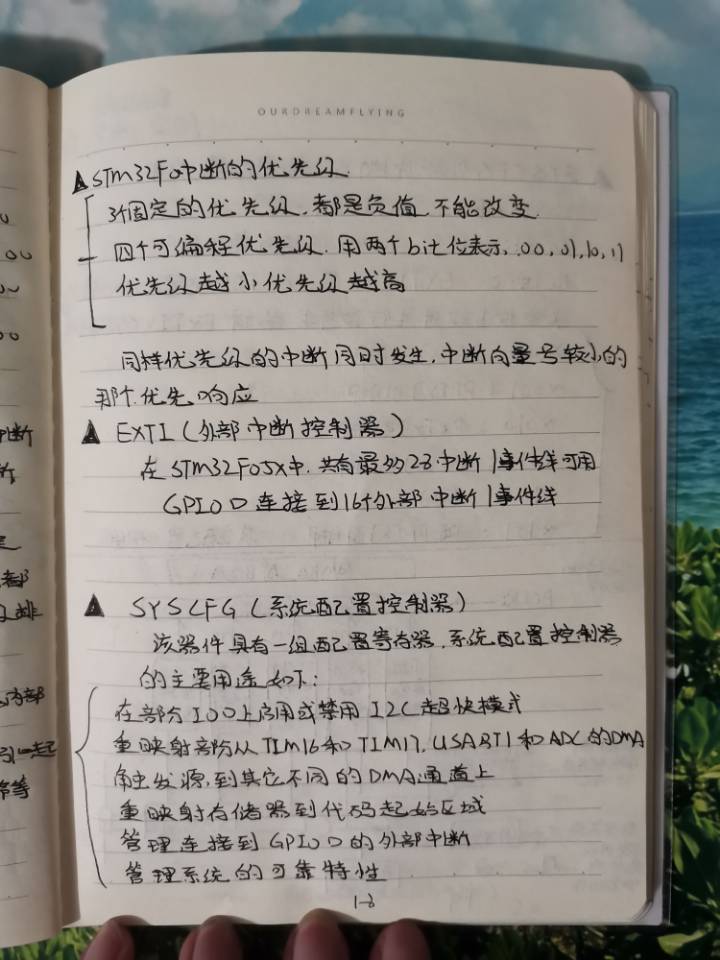 OURDREAMFLYING
▲STM32F0中断的优先级
3个固定的优先级，都是负值，不能改变
四个可编程优先级，用两个bit位表示，00，01，10，11
优先级越小优先级越高
同样优先级的中断同时发生，中断向量号较小的
那个优先响应
▲ EXTI（外部中断控制器）
在STM32F05X中，共有最多28中断/事件线可用
GPIO口连接到16个外部中断/事件线
▲ SYSCFG（系统配置控制器）
该器件具有一组配置寄存器，系统配置控制器
的主要用途如下：
在部分IO口上启用或禁用I2C超快模式
重映射部份从TIM16和TIM17，USART1和ADC的DMA
触发源，到其它不同的DMA通道上
重映射存储器到代码起始区域
管理连接到GPIO口的外部中断
管理系统的可靠特性
00
00
中断
都
内部
一起
等